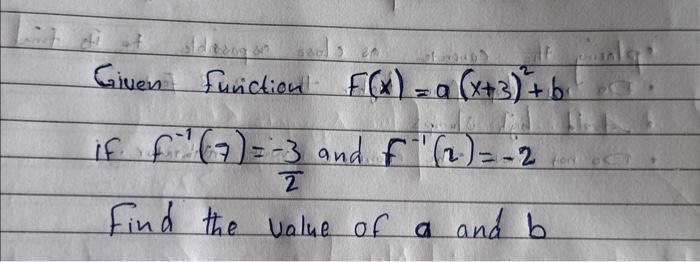 Given function F(x) = a(x+3)² + b
if f⁻¹(7) = -3/2 and f⁻¹(2) = -2
Find the value of a and b